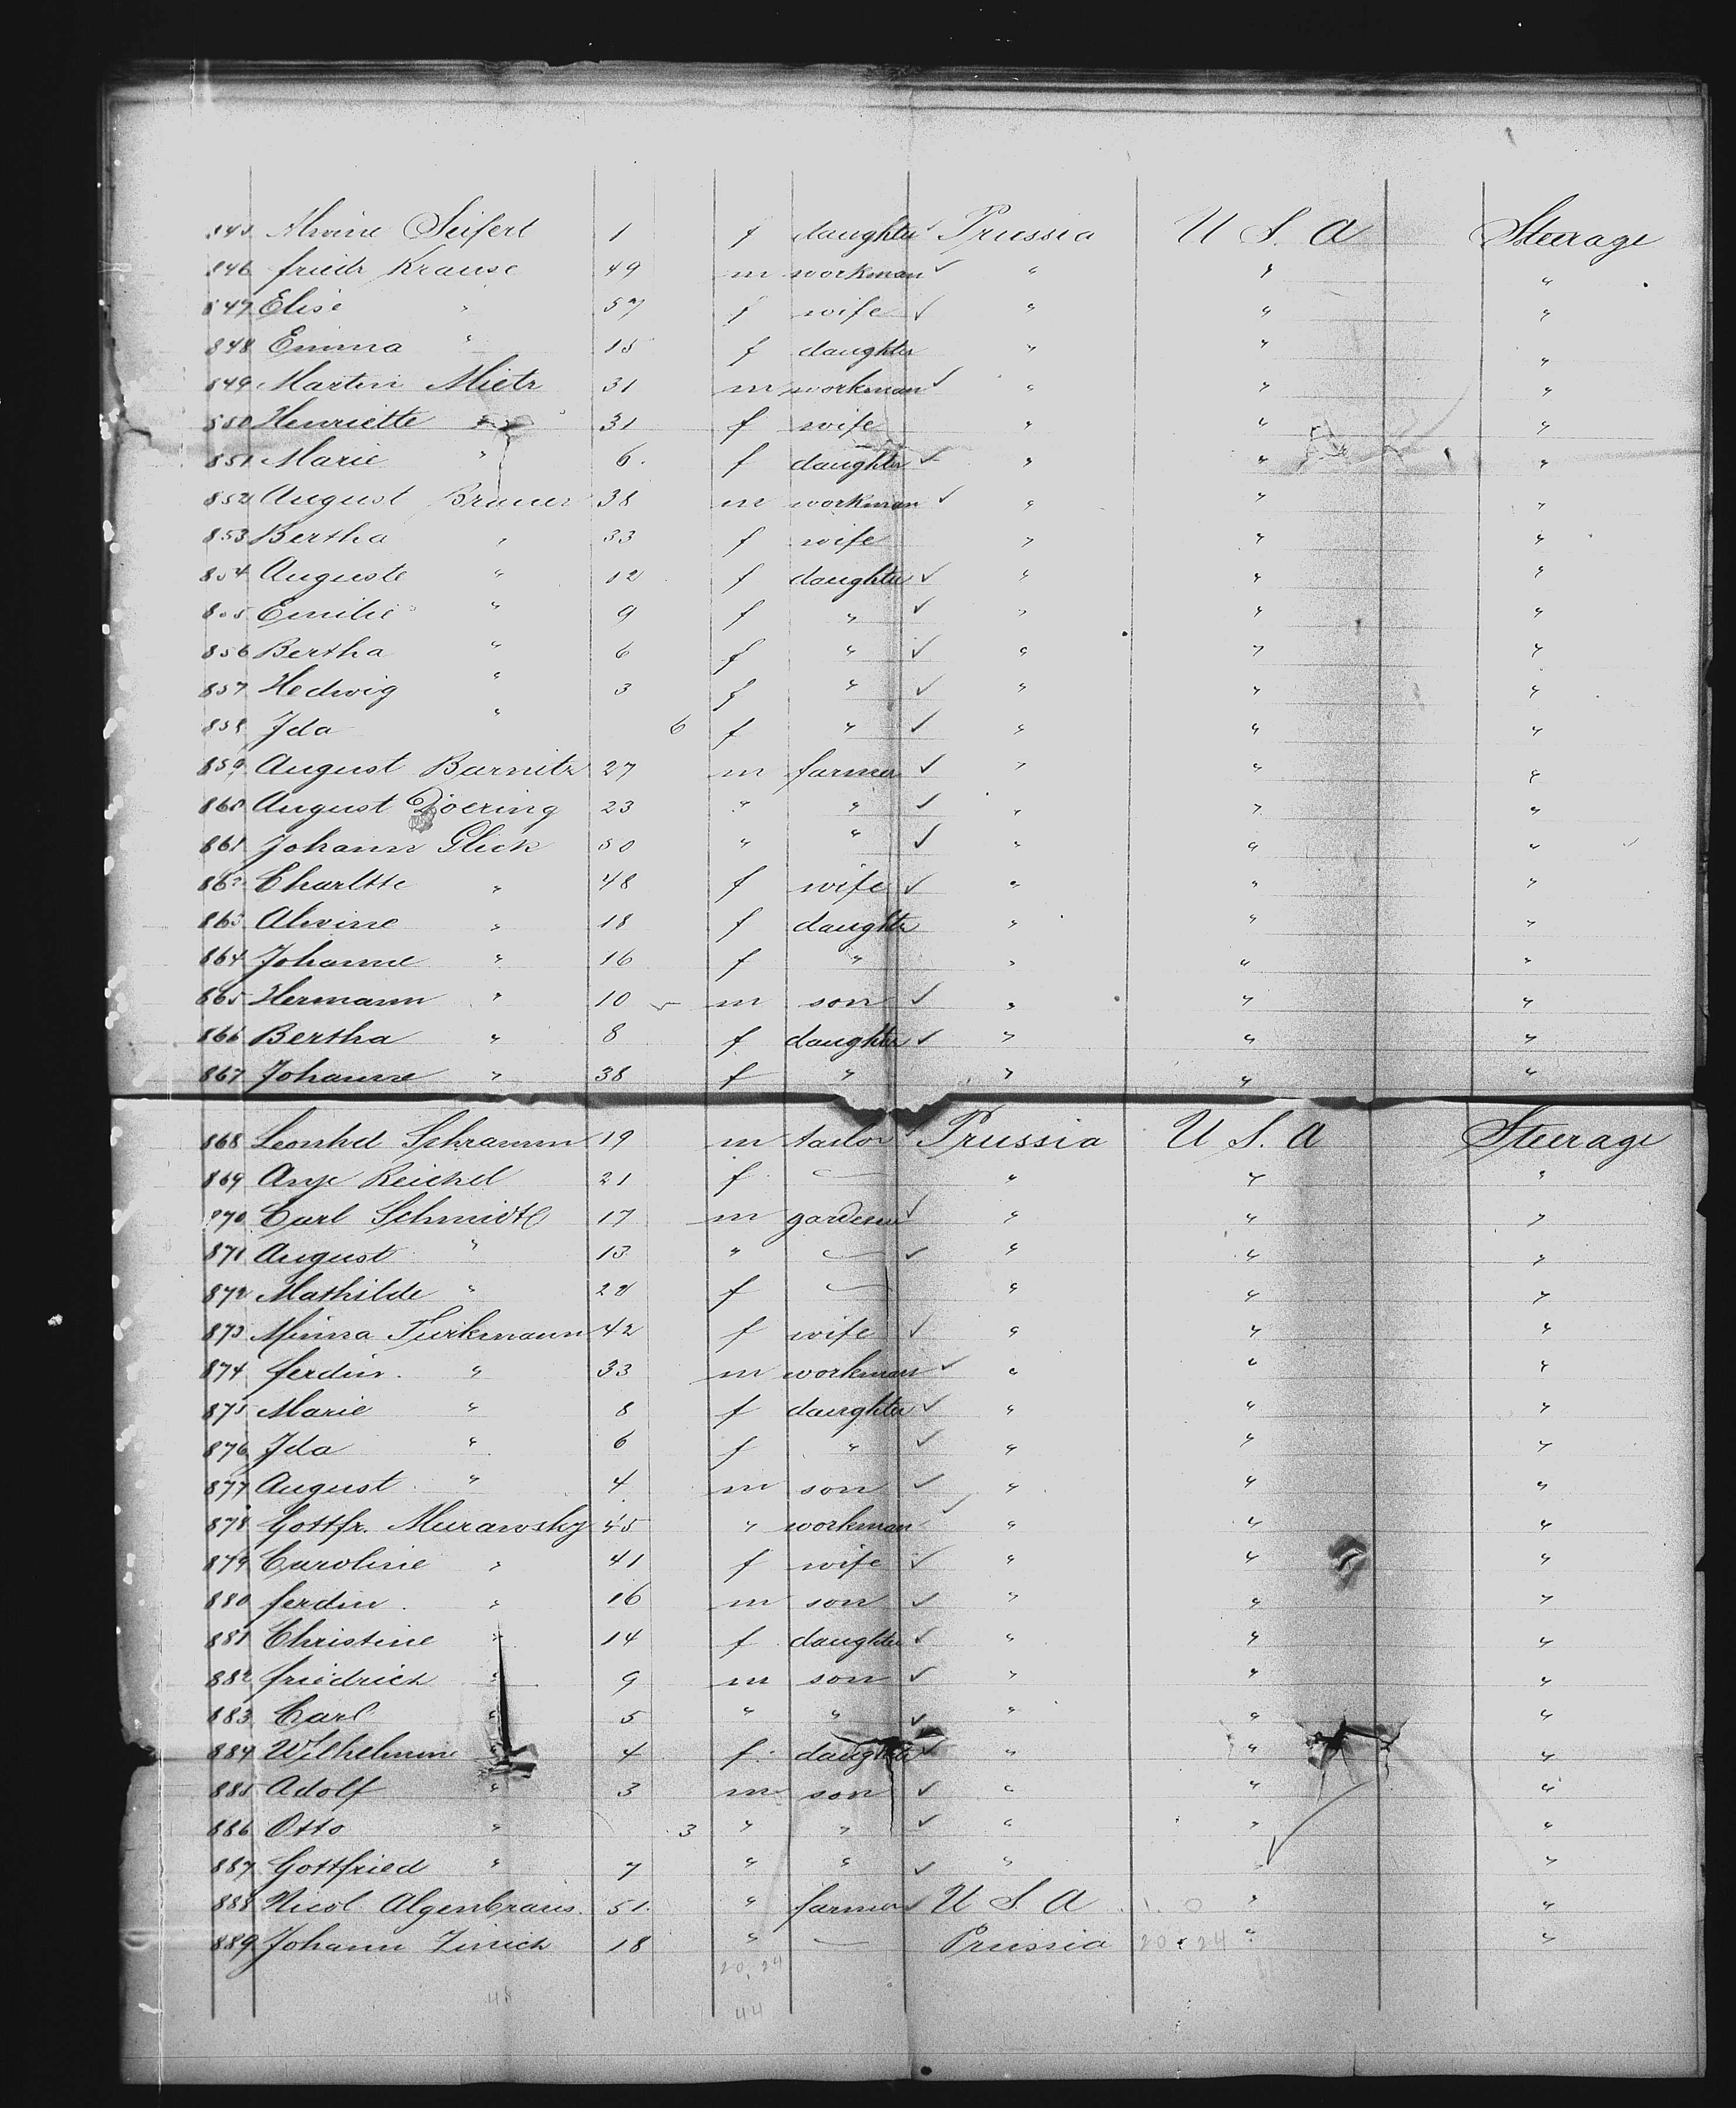 845 Alwine Seifert 1 f daughter Prussia U S. A Steerage
846 friedr Krause 49 m workman " " "
847 Elise " 57 f wife " " "
848 Emma " 15 f daughter " " "
849 Martin Mietz 31 m workman " " "
850 Henriette " 31 f wife " " "
851 Marie " 6. f daughter " " "
852 August Brauer 38 m workman " " "
853 Bertha " 33 f wife " " "
854 Auguste " 12 f daughter " " "
855 Emilie " 9 f " " " "
856 Bertha " 6 f " " " "
857 Hedwig " 3 f " " " "
858 Ida " 6 f " " " "
859 August Barnitz 27 m farmer " " "
860 August Doering 23 " " " " "
861 Johann Glick 50 " " " " "
862 Charltte " 48 f wife " " "
863 Alwine " 18 f daughter " " "
864 Johanne " 16 f " " " "
865 Hermann " 10 m son " " "
866 Bertha " 8 f daughter " " "
867 Johanne " 38 f " " " "
868 Leonhd Schramm 19 m tailor Prussia U S. A Steerage
869 Reichel 21 f — " " "
870 Carl Schmidt 17 m gardener " " "
871 August " 13 " — " " "
872 Mathilde " 22 f — " " "
873 Minna Turkmann 42 f wife " " "
874 ferdin. " 33 m workman " " "
875 Marie " 8 f daughter " " "
876 Ida " 6 f " " " "
877 August " 4 m son " " "
878 Gottfr. Murawsky 45 " workman " " "
879 Caroline " 41 f wife " " "
880 ferdin. " 16 m son " " "
881 Christine " 14 f daughter " " "
882 friedrich " 9 m son " " "
883 Carl " 5 " " " " "
884 Wilhelmine " 4 f daughter " " "
885 Adolf " 3 m son " " "
886 Otto " 3 " " " " "
887 Gottfried " 7 " " " " "
888 Nicol Algenbraus. 51. " farmer U S. A 1. 0 " "
889 Johann Zinich 18 " — Prussia 20 24 " "
20, 24
48
44